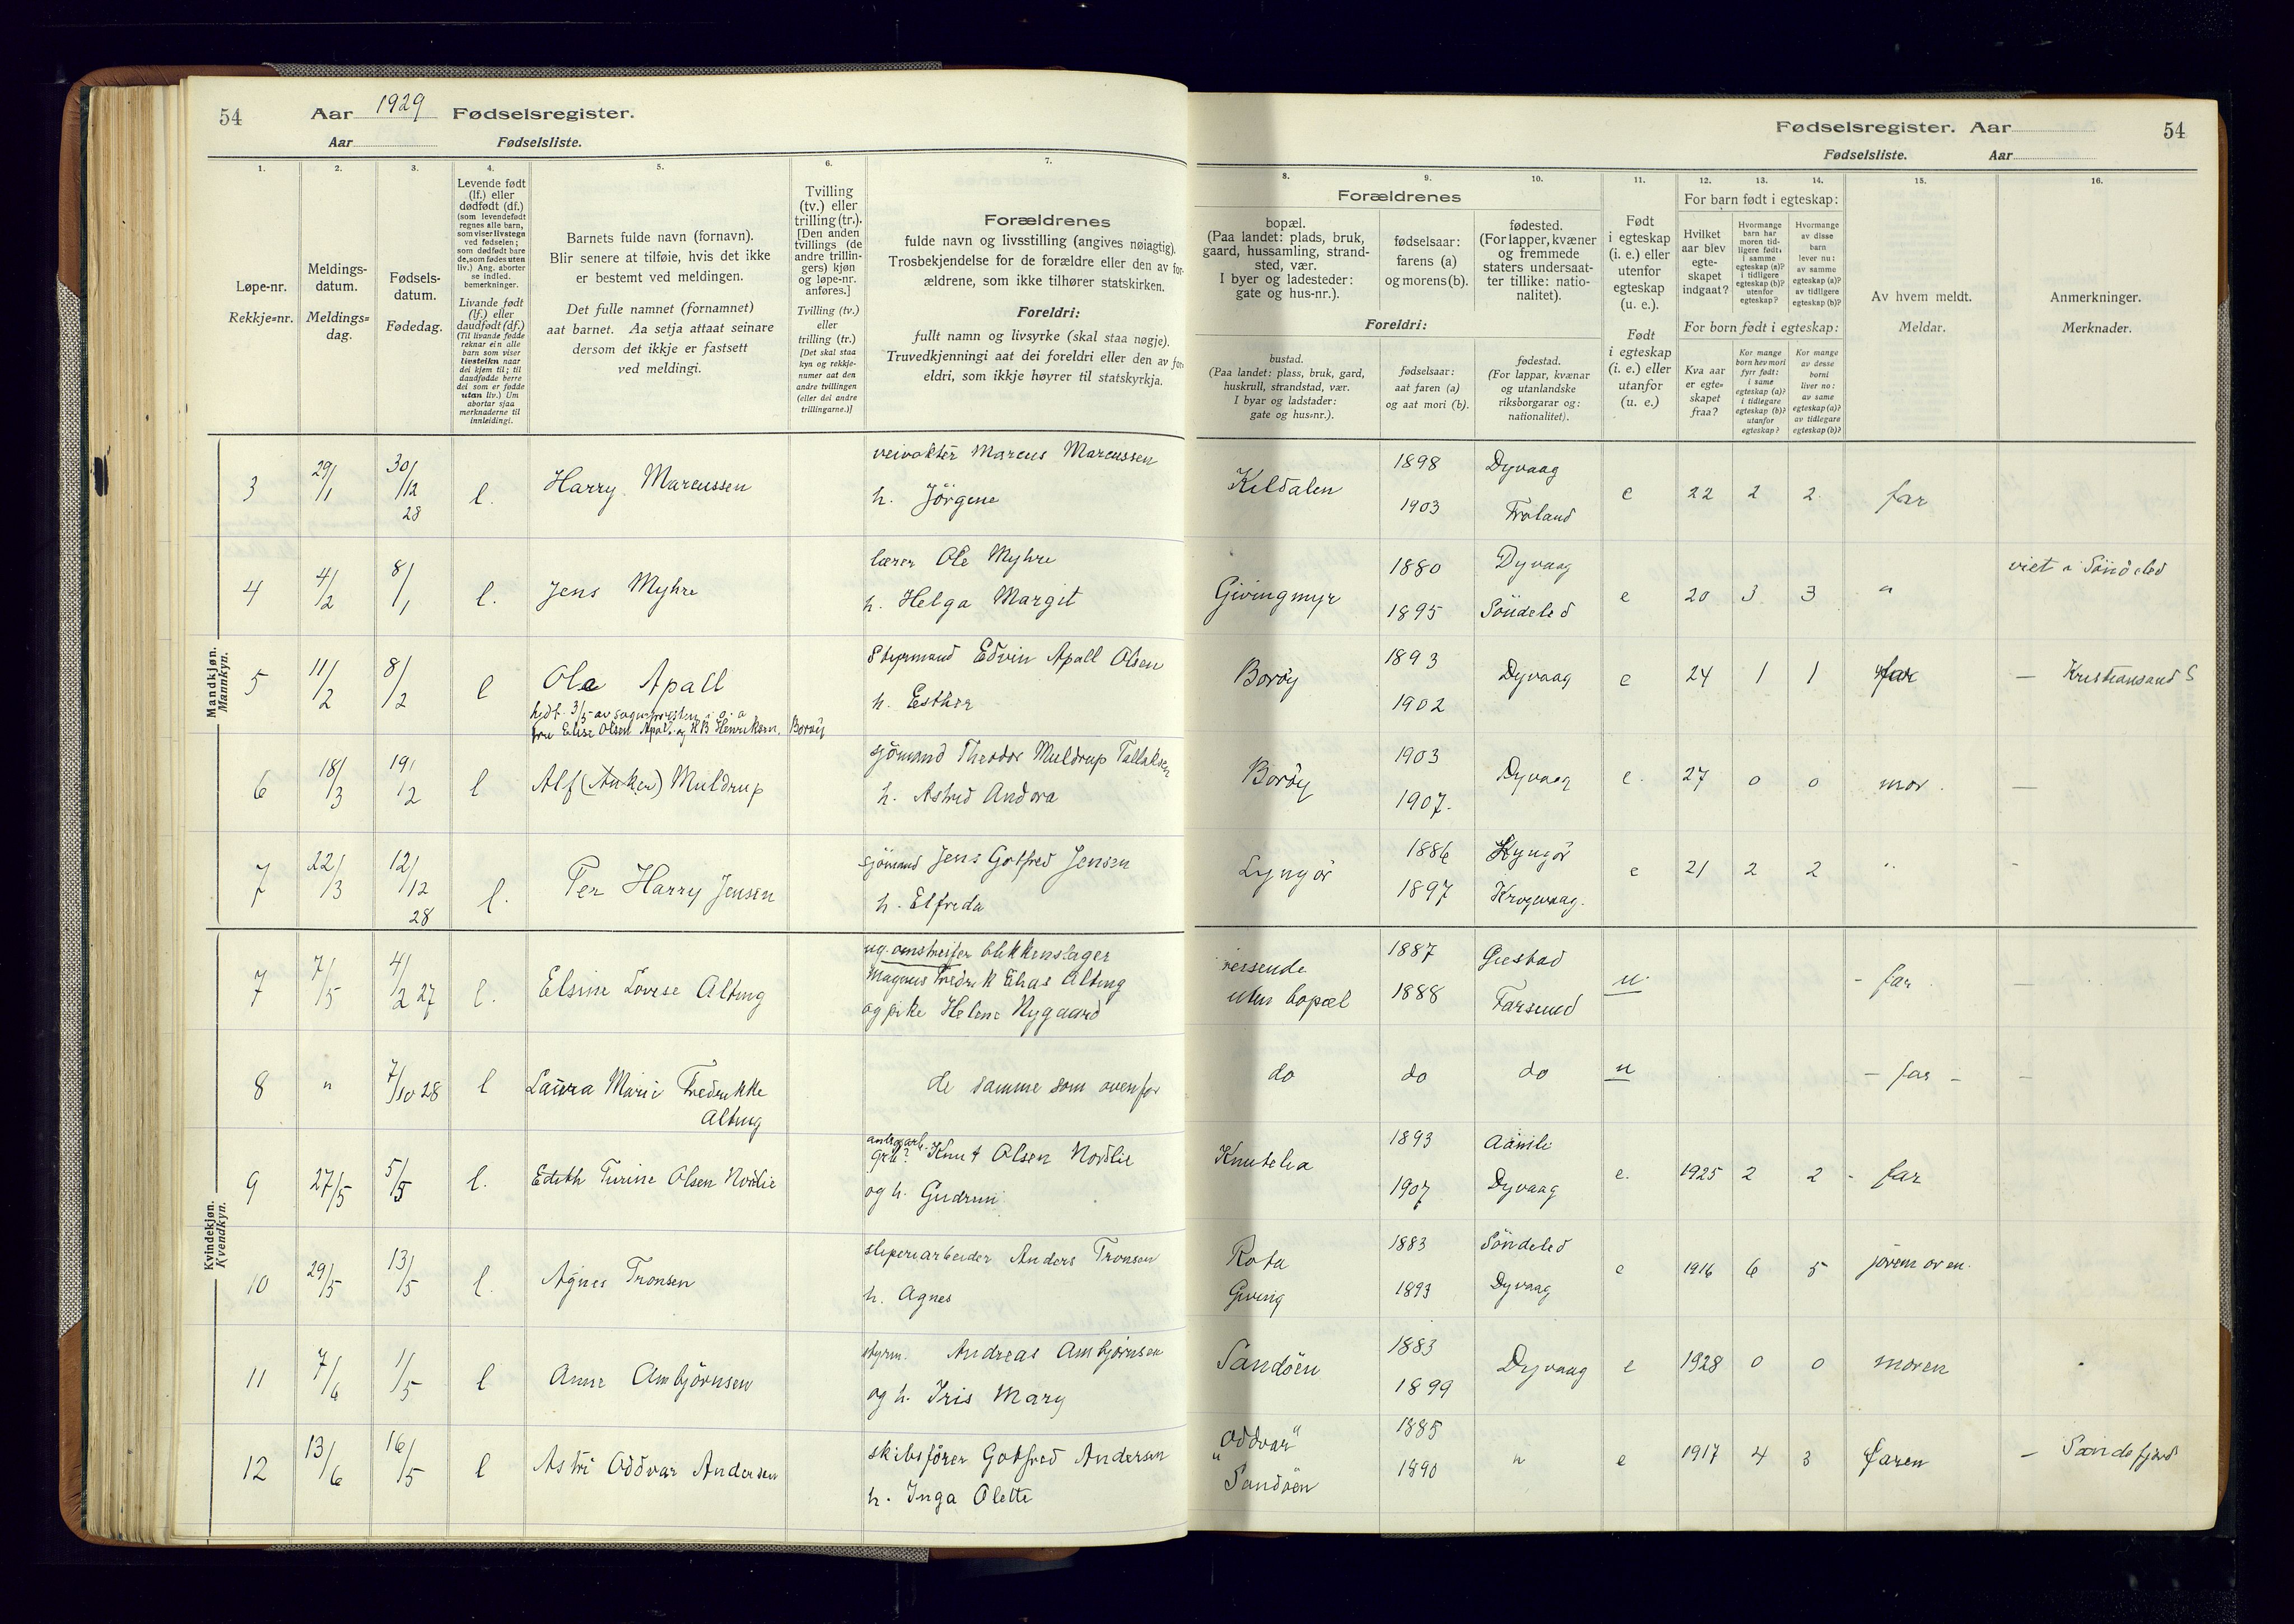 54 Aar 1929 Fødselsregister.
Aar Fødselsliste.
Fødselsregister. Aar 54
Fødselsliste. Aar
1. 2. 3. 4. 5. 6. 7.
Løpe-nr.
Rekkje=nr.
Meldings-
datum.
Meldings=
dag.
Fødsels-
datum.
Fødedag.
Levende født
(lf.) eller
dødfødt (df.)
(som levendefødt
regnes alle barn,
som viser livstegn
ved fødselen;
som dødfødt bare
de, som fødes uten
liv.) Ang. aborter
se indled.
bemerkninger.
Livande født
(lf.) eller
daudfødt (df.)
(Til livande fødde
reknar ein alle
barn som viser
livsteikn naar
dei kjem til; til
daudfødde berre
dei som er fødde
utan liv.) Um
abortar sjaa
merknaderne til
innleidingi.
Barnets fulde navn (fornavn).
Blir senere at tilføie, hvis det ikke
er bestemt ved meldingen.
Det fulle namnet (fornamnet)
aat barnet. Aa setja attaat seinare
dersom det ikkje er fastsett
ved meldingi.
Tvilling
(tv.) eller
trilling (tr.).
[Den anden
tvillings (de
andre trillin-
gers) kjøn
og løpe-nr.
anføres.]
Tvilling (tv.)
eller
trilling (tr.)
[Det skal staa
kyn og rekkje-
numer aat den
andre tvillingen
(eller dei andre
trillingarne.)]
Forældrenes
fulde navn og livsstilling (angives nøiagtig).
Trosbekjendelse for de forældre eller den av for-
ældrene, som ikke tilhører statskirken.
Foreldri:
fullt namn og livsyrke (skal staa nøgje).
Truvedkjenningi aat dei foreldri eller den av for-
eldri, som ikkje høyrer til statskyrkja.
8. 9. 10. 11. 12. 13. 14. 15. 16.
Forældrenes
bopæl.
(Paa landet: plads, bruk,
gaard, hussamling, strand-
sted, vær.
I byer og ladesteder:
gate og hus-nr.).
fødselsaar:
farens (a)
og morens (b).
fødested.
(For lapper, kvæner
og fremmede
staters undersaat-
ter tillike: natio-
nalitet).
Foreldri:
bustad.
(Paa landet: plass, bruk, gard,
huskrull, strandstad, vær.
I byar og ladstader:
gate og hus=nr.).
fødselsaar:
aat faren (a)
og aat mori (b).
fødestad.
(For lappar, kvænar
og utanlandske
riksborgarar og:
nationalitet).
Født
i egteskap
(i. e.) eller
utenfor
egteskap
(u. e.).
Født
i egteskap
(i. e.) eller
utanfor
(u. e.)
For barn født i egteskap:
Hvilket
aar blev
egte-
skapet
indgaat?
Hvormange
barn har
moren tid-
ligere født:
i samme
egteskap (a)?
i tidligere
egteskap (b)?
utenfor
egteskap?
Hvormange
av disse
barn
lever nu:
av samme
egteskap (a)?
av tidligere
egteskap (b)?
For born født i egteskap:
Kva aar
er egte=
skapet
fraa?
Kor mange
born hev mori
fyrr født:
i same
egteskap (a)?
i tidlegare
egteskap (b)?
utanfor
egteskap?
Kor mange
av desse
borni
liver no:
av same
egteskap (a)?
av tidlegare
egteskap (b)?
Av hvem meldt.
Meldar.
Anmerkninger.
Merknader.
Mandkjøn.
Mannkyn.
3 29/1 30/12 28 l. Harry Marcussen
veivokter Marcus Marcussen
h. Jörgine
Kildalen 1898 1903 Dyvaag Froland e 22 2 2 far
4 4/2 8/1 l. Jens Myhre
lærer Ole Myhre
h. Helga Margit
Givingmyr 1880 1895 Dyvaag Söndeled e 20 3 3 " viet i Söndeled
5 11/2 8/2 l Ole Apall
hjdt. 3/5 av sognepresten
fru Elise Olsen Apall og H B Henriksen, Boröy
Styrmand Edvin Apall Olsen
h. Esther
Boröy 1893 1902 Dyvaag e 24 1 1 far — Kristiansand S
6 18/3 19/2 l Alf (Anker) Muldrup
sjömand Theodor Muldrup Tallaksen
h. Astrid Andora
Boröy 1903 1907. Dyvaag e. 27 0 0 mor. —
7 22/3 12/12 28 l. Per Harry Jensen
sjömand Jens Gotfred Jensen
h. Elfreda
Lyngör 1886 1897 Lyngör Krogevaag. e 21 2 2 " -
Kvindekjøn.
Kvendkyn.
7 7/5 4/2 27 l. Elsine Lovise Alting
ug. omstreifer blikkenslager
Magnus Fredrik Elias Alting
og pike Helene Nygaard
reisende
uten bopæl
1887 1888 Gjestad Farsund u. - far —
8 " 7/10 28 l Laura Marie Fredrikke
Alting
de samme som ovenfor
do do do u — far — —
9 27/5 5/5 l. Edith Turine Olsen Nordlie
Knut Olsen Nordlie
og h. Gudrun
Knutelia 1893 1907 Aamli Dyvaag e. 1925 2 2 - far
10 29/5 13/5 l. Agnes Tronsen
sliperiarbeider Anders Tronsen
h. Agnes
Rota
Giving
1883 1893 Söndeled Dyvaag e 1916 6 5 jorem oven.
11 7/6 1/5 l Anne Ambjörnsen
styrm. Andreas Ambjörnsen
og h. Iris Mary
Sandöen 1883 1899 Dyvaag e 1928 0 0 moren
12 13/6 16/5 l Astri Oddvar Andersen
skibsförer Gotfred Andersen
h. Inga Olette
"Oddvar"
Sandöen
1885 1890 " e 1917 4 3 faren — Sandefjord